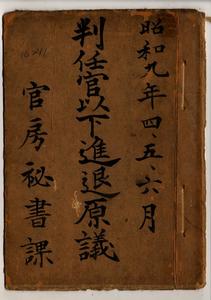 昭和九年四、五、六月
判任官以下進退原議
官房秘書課